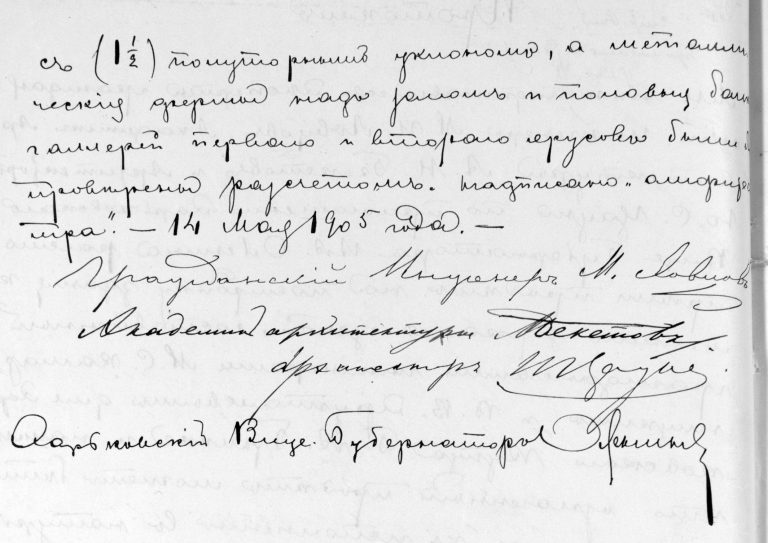 съ (1½) полуторнымъ уклономъ, а металли
ческія фермы надъ заломъ и половыя бал
галлерей перваго и втораго ярусовъ были
провѣрены разсчетомъ. надписано „амфитеа
тра“. — 14 Мая 1905 года. —
Гражданскій Инженеръ М.
Академикъ архитектуры Бекетовъ
Архитекторъ
Харьковскій Вице-Губернаторъ